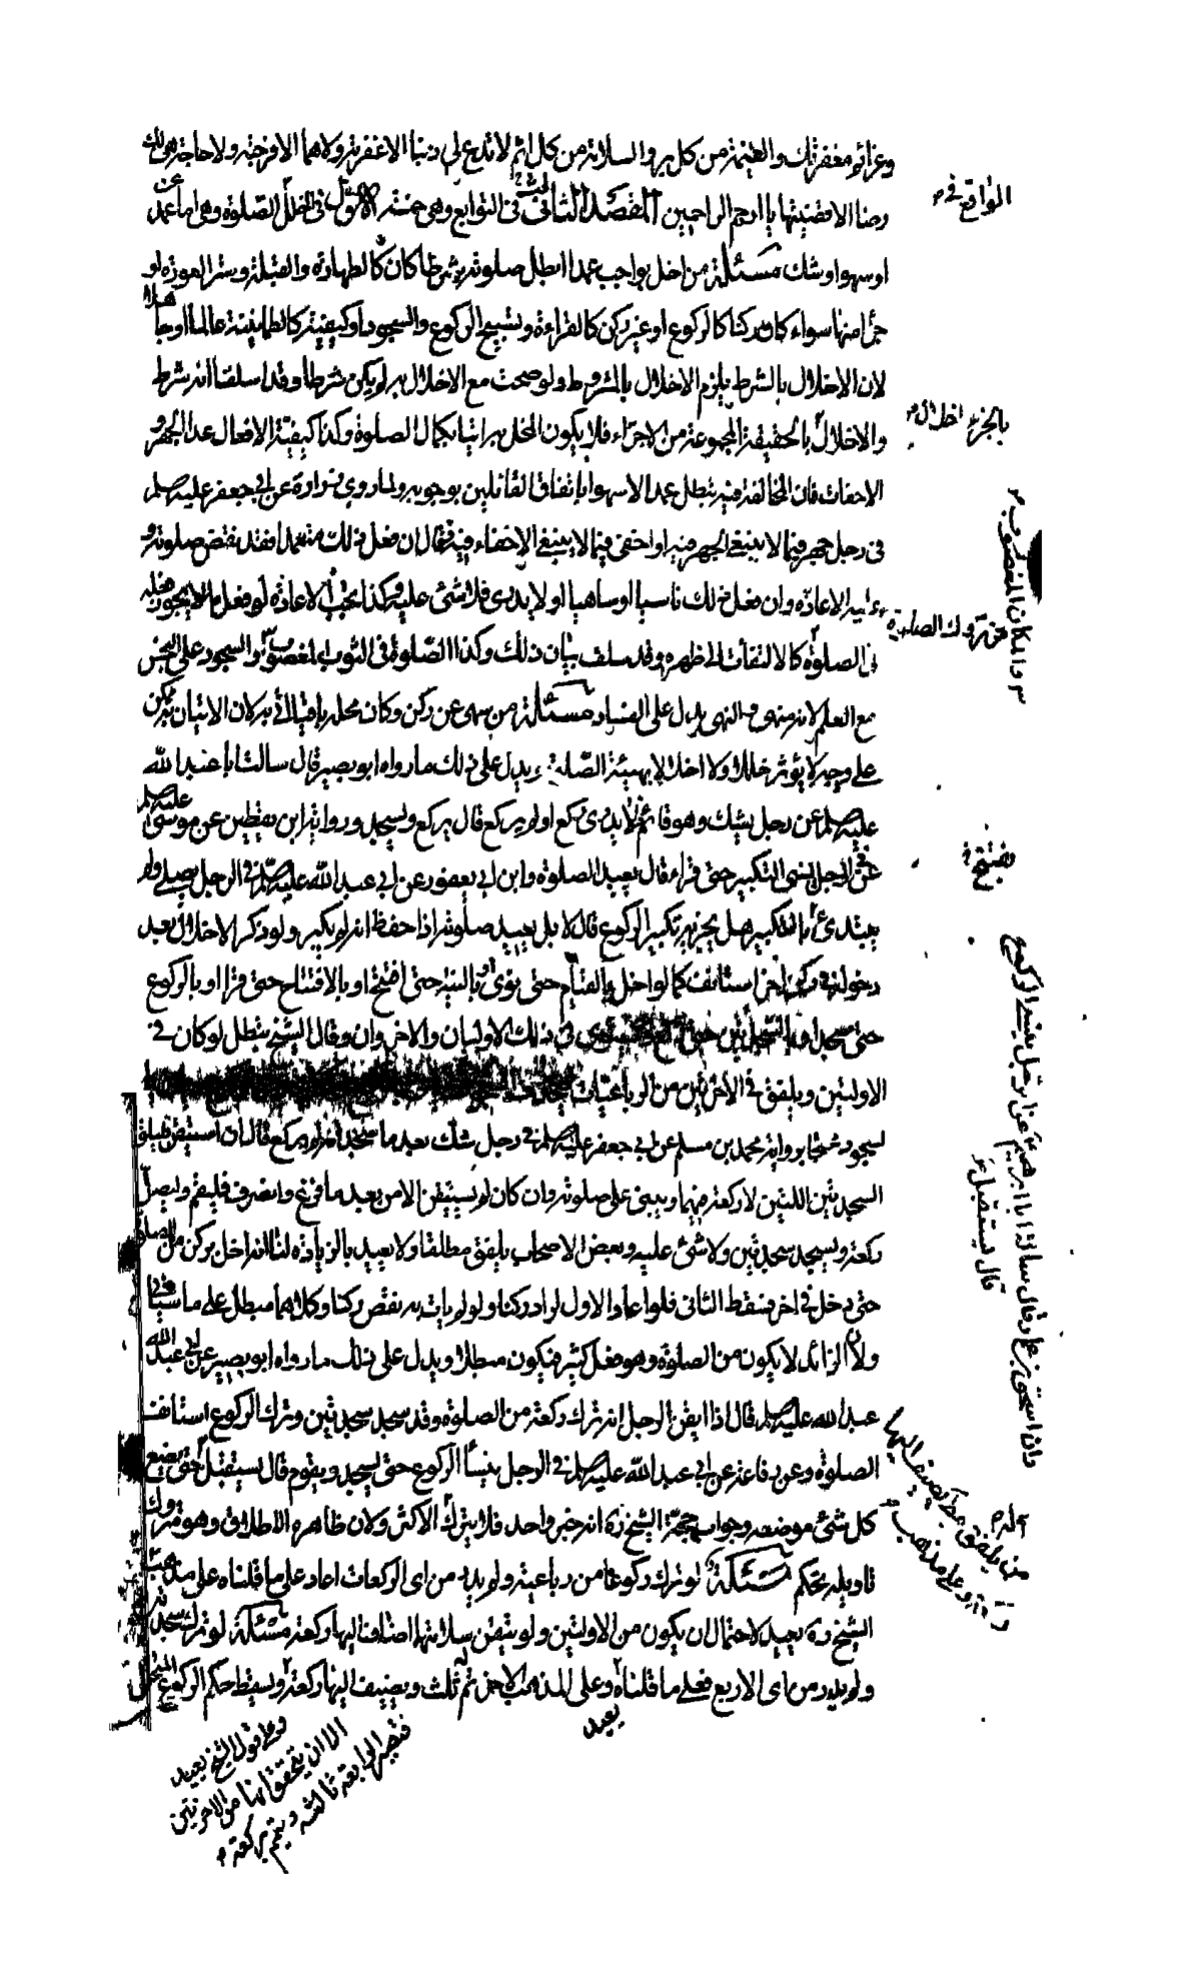 وعزائم مغفرتك والغنيمة من كل بر والسلامة من كل اثم لا تدع لي ذنبا الا غفرته ولا هما الا فرجته ولا حاجة هي لك
رضا الا قضيتها يا ارحم الراحمين المقصد الثاني في التوابع وهي خمسة الاول في الخلل الصلوة وهي اما عن عمد
او سهو او شك مسئلة من اخل بواجب عمدا ابطل صلوته شرطا كان كالطهارة والقبلة وستر العورة او
جزأ منها سواء كان ركنا كالركوع او غير ركن كالقراءة وتسبيح الركوع والسجود او كيفية كالطمانينة عالما او جاهلا
لان الاخلال بالشرط يلزم الاخلال بالمشروط ولو صحت مع الاخلال به لم يكن شرطا وقد اسلفنا انه شرط
والاخلال بالحقيقة المجموعة من الاجزاء فلا يكون المخل به اتيا بكمال الصلوة وكذا كيفية الافعال عدا الجهر و
الاخفات فان المخالفة فيه تبطل عمدا لا سهوا باتفاق القائلين بوجوبه ولما روي زرارة عن ابي جعفر عليه السلم
في رجل جهر فيما لا ينبغي الجهر فيه او اخفى فيما لا ينبغي الاخفاء فيه فقال ان فعل ذلك متعمدا فقد نقض صلوته و
عليه الاعادة وان فعل ذلك ناسيا او ساهيا او لا يدري فلا شئ عليه وكذا يجب الاعادة لو فعل ما لا يجوز فعله
في الصلوة كالالتفات الى ظهره وقد سلف بيان ذلك وكذا الصلوة في الثوب المغصوب والسجود على النجس
مع العلم لانه منهى والنهى يدل على الفساد مسئلة من سهى عن ركن وكان محله باقيا اتى به لان الاتيان به ممكن
على وجه لا يؤثر خللا ولا اخلالا بهيئة الصلوة ويدل على ذلك ما رواه ابو بصير قال سالت ابا عبد الله
عليه السلم عن رجل يشك وهو قائم لا يدري ركع او لم يركع قال يركع ويسجد ورواية ابن يقطين عن موسى عليه السلم
عن الرجل ينسى التكبير حتى قراء قال يعيد الصلوة وابن ابي يعفور عن ابي عبد الله عليه السلم في الرجل يصلي ولم
يبتدئ بالتكبير هل يجزيه تكبير الركوع قال لا بل يعيد صلوته اذا حفظ انه لم يكبر ولو ذكر الاخلال بعد
دخوله في ركن اخر استانف كما لو اخل بالقيام حتى نوى او بالنية حتى افتتح او بالافتتاح حتى قرا او بالركوع
حتى سجد او بالسجدتين حتى ركع في ذلك الاوليان والاخروان وقال الشيخ تبطل لو كان في
الاوليين ويلفق في الاخرتين من الرباعيات
لسجود محتجا برواية محمد بن مسلم عن ابي جعفر عليه السلم في رجل شك بعد ما سجد انه لم يركع قال ان استيقن فليلق
السجدتين اللتين لا ركعة فيهما ويبنى على صلوته وان كان لم يستيقن الا من بعد ما فرغ وانصرف فليقم وليصل
ركعة ويسجد سجدتين ولا شئ عليه وبعض الاصحاب يلفق مطلقا ولا يعيد بالزيادة لنا انه اخل بركن من الصلوة
حتى دخل في اخر فسقط الثاني فلو اعاد الاول لزاد ركنا ولو لم يات به نقص ركنا وكلاهما مبطل على ما سياتي
ولان الزائد لا يكون من الصلوة وهو فعل كثير فيكون مبطلا ويدل على ذلك ما رواه ابو بصير عن ابي عبد الله
عبد الله عليه السلم قال اذا ايقن الرجل انه ترك ركعة من الصلوة وقد سجد سجدتين وترك الركوع استانف
الصلوة وعن رفاعة عن ابي عبد الله عليه السلم في الرجل ينسأ الركوع حتى يسجد ويقوم قال يستقبل حتى يضع
كل شئ موضعه وجواب حجة الشيخ ره انه خبر واحد فلا يترك الاكثر ولان ظاهره الاطلاق وهو متروك
تاويله تحكم مسئلة لو ترك ركوعا من رباعية ولم يدر من اى الركعات اعاد على ما قلناه على مذهب
الشيخ ره يعيد لاحتمال ان يكون من الاوليين ولو تيقن سلامتها اضاف اليها ركعة مسئلة لو ترك سجدتين
ولم يدر من اى الاربع فعلى ما قلناه وعلى المذهب الاخر تم ثلث ويضيف اليها ركعة ويسقط حكم الركوع المتخلل
يعيد
وعلى قول الشيخ يعيد
الا ان يتحقق انها من الاخرتين
فتصير الرابعة ثالثة ويتم بركعة
الواقع في
بالجزء اخلال
من تروك الصلوة
والمكان المغصوب
وان اسحق بن عمار قال سالت ابا ابراهيم عن الرجل ينسى ان يركع
قال يستقبل
من يلفق يضيف اليها
وعلى مذهب